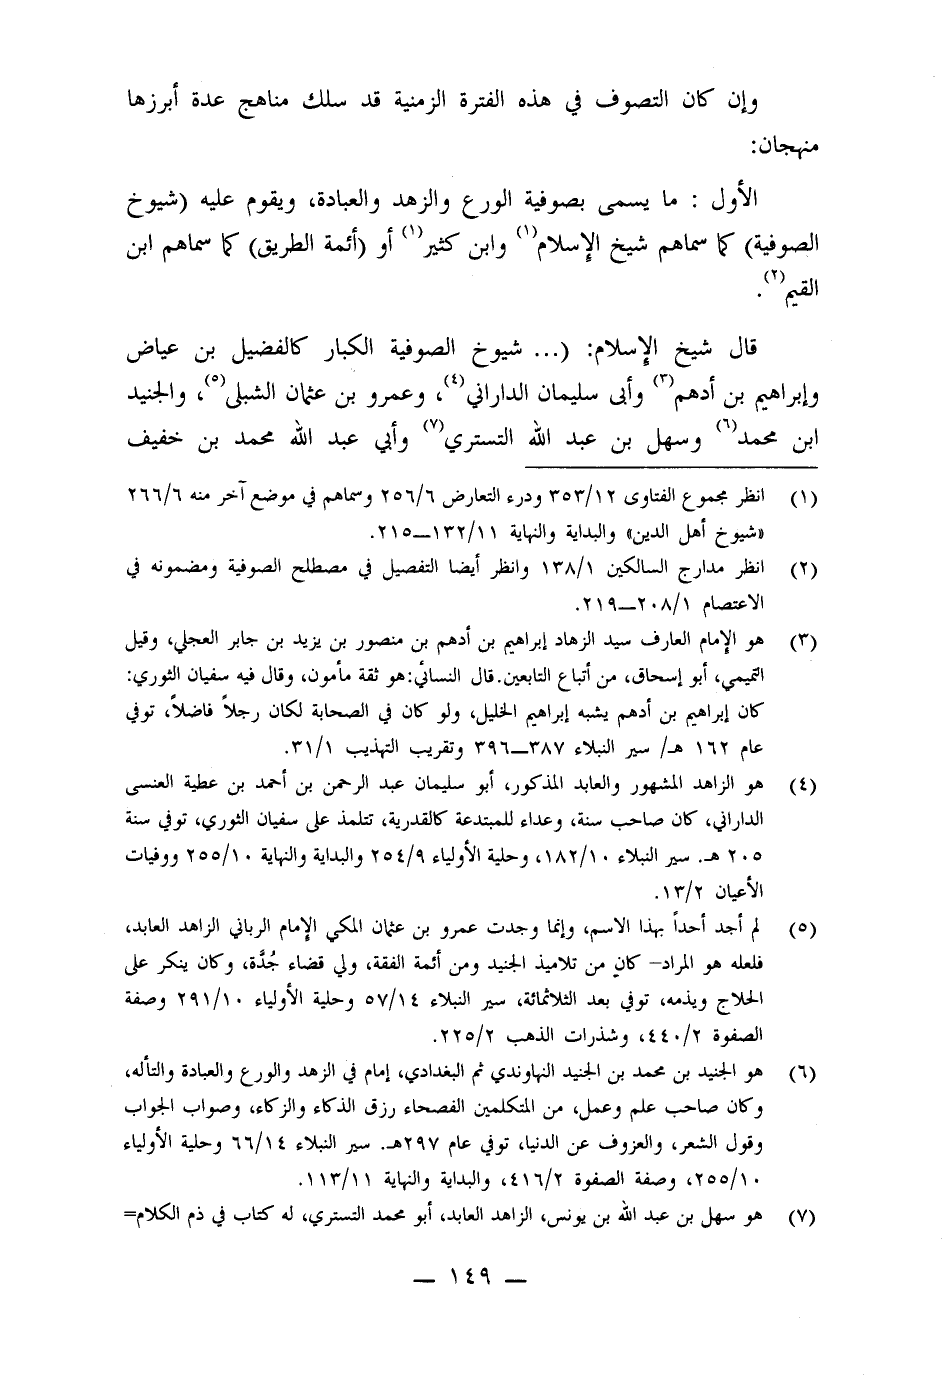 وإن كان التصوف في هذه الفترة الزمنية قد سلك مناهج عدة أبرزها
منهجان:
الأول : ما يسمى بصوفية الورع والزهد والعبادة، ويقوم عليه (شيوخ
الصوفية) كما سماهم شيخ الإسلام(١) وابن كثير(١) أو (أئمة الطريق) كما سماهم ابن
القيم(٢).
قال شيخ الإسلام: (... شيوخ الصوفية الكبار كالفضيل بن عياض
وإبراهيم بن أدهم(٣) وأبى سليمان الداراني(٤)، وعمرو بن عثمان الشبلي(٥)، والجنيد
ابن محمد(٦) وسهل بن عبد الله التستري(٧) وأبي عبد الله محمد بن خفيف
(١) انظر مجموع الفتاوى ٣٥٣/١٢ ودرء التعارض ٢٥٦/٦ وسماهم في موضع آخر منه ٢٦٦/٦
«شيوخ أهل الدين» والبداية والنهاية ١٣٢/١١—٢١٥.
(٢) انظر مدارج السالكين ١٣٨/١ وانظر أيضا التفصيل في مصطلح الصوفية ومضمونه في
الاعتصام ٢٠٨/١—٢١٩.
(٣) هو الإمام العارف سيد الزهاد إبراهيم بن أدهم بن منصور بن يزيد بن جابر العجلي، وقيل
التميمي، أبو إسحاق، من أتباع التابعين. قال النسائي: هو ثقة مأمون، وقال فيه سفيان الثوري:
كان إبراهيم بن أدهم يشبه إبراهيم الخليل، ولو كان في الصحابة لكان رجلاً فاضلاً، توفي
عام ١٦٢ هـ/ سير النبلاء ٣٨٧—٣٩٦ وتقريب التهذيب ٣١/١.
(٤) هو الزاهد المشهور والعابد المذكور، أبو سليمان عبد الرحمن بن أحمد بن عطية العنسى
الداراني، كان صاحب سنة، وعداء للمبتدعة كالقدرية، تتلمذ على سفيان الثوري، توفي سنة
٢٠٥ هـ. سير النبلاء ١٨٢/١٠، وحلية الأولياء ٢٥٤/٩ والبداية والنهاية ٢٥٥/١٠ ووفيات
الأعيان ١٣/٢.
(٥) لم أجد أحداً بهذا الاسم، وإنما وجدت عمرو بن عثمان المكي الإمام الرباني الزاهد العابد،
فلعله هو المراد– كان من تلاميذ الجنيد ومن أئمة الفقة، ولي قضاء جُدَّة، وكان ينكر على
الحلاج ويذمه، توفي بعد الثلاثمائة، سير النبلاء ٥٧/١٤ وحلية الأولياء ٢٩١/١٠ وصفة
الصفوة ٤٤٠/٢، وشذرات الذهب ٢٢٥/٢.
(٦) هو الجنيد بن محمد بن الجنيد النهاوندي ثم البغدادي، إمام في الزهد والورع والعبادة والتأله،
وكان صاحب علم وعمل، من المتكلمين الفصحاء رزق الذكاء والزكاء، وصواب الجواب
وقول الشعر، والعزوف عن الدنيا، توفي عام ٢٩٧هـ. سير النبلاء ٦٦/١٤ وحلية الأولياء
٢٥٥/١٠، وصفة الصفوة ٤١٦/٢، والبداية والنهاية ١١٣/١١.
(٧) هو سهل بن عبد الله بن يونس، الزاهد العابد، أبو محمد التستري، له كتاب في ذم الكلام=
— ١٤٩ —